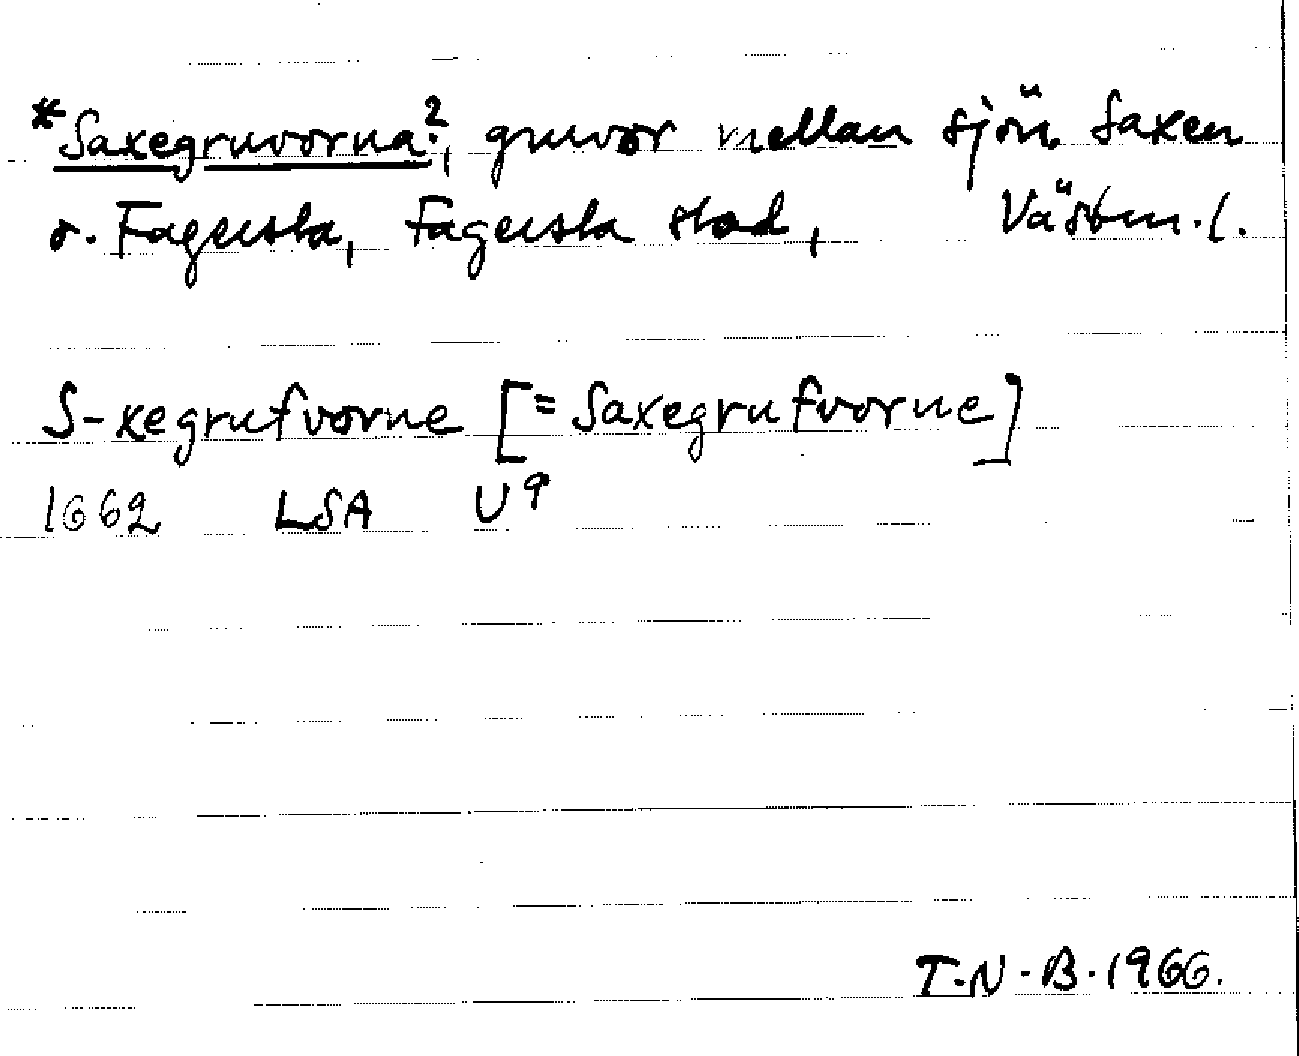 *Saxegruvorna?, gruvor mellan sjön Saxen
o. Fagersta, Fagersta stad, Västm. l.
S-xegrufvorne [= Saxegrufvorne]
1662 LSA U9
T.N.B. 1966.